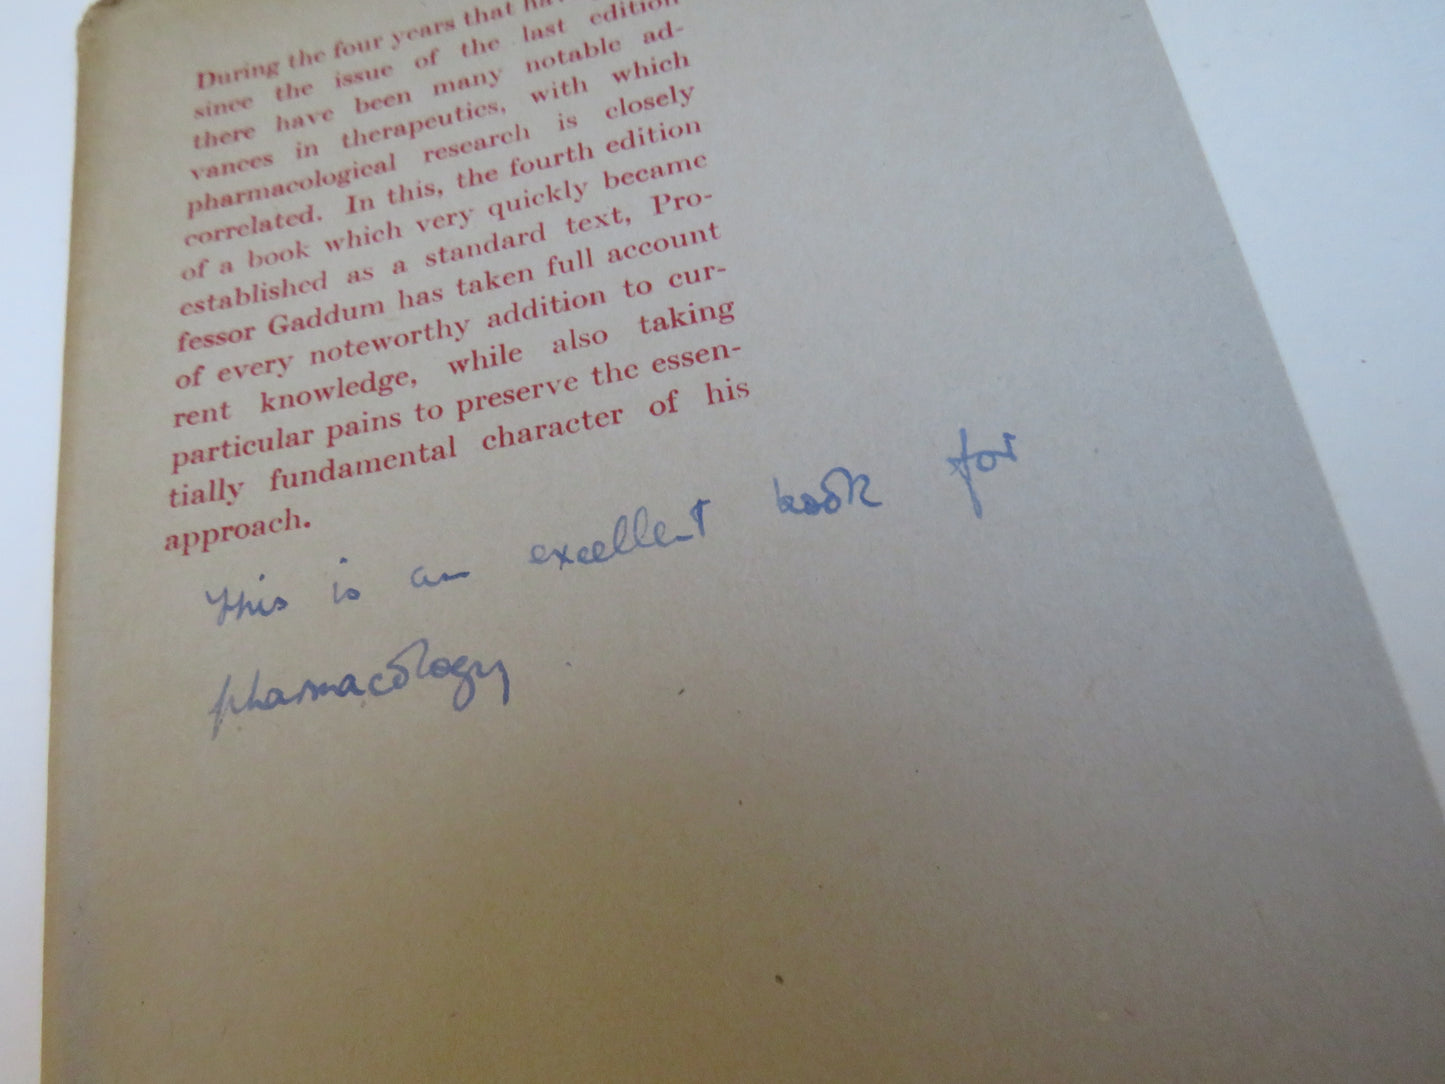 During the four years that
since the issue of the last edition
there have been many notable ad-
vances in therapeutics, with which
pharmacological research is closely
correlated. In this, the fourth edition
of a book which very quickly became
established as a standard text, Pro-
fessor Gaddum has taken full account
of every noteworthy addition to cur-
rent knowledge, while also taking
particular pains to preserve the essen-
tially fundamental character of his
approach.
This is an excellent book for
pharmacology.